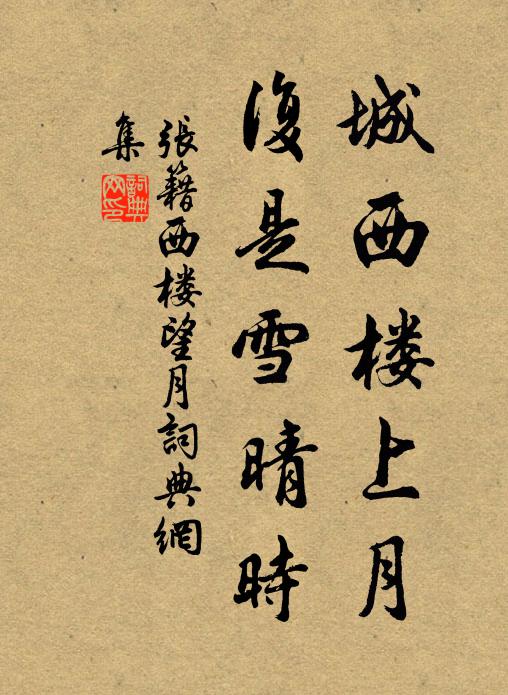 城西楼上月
復是雪晴時
張籍西楼望月詞典網
集
詞典
网印